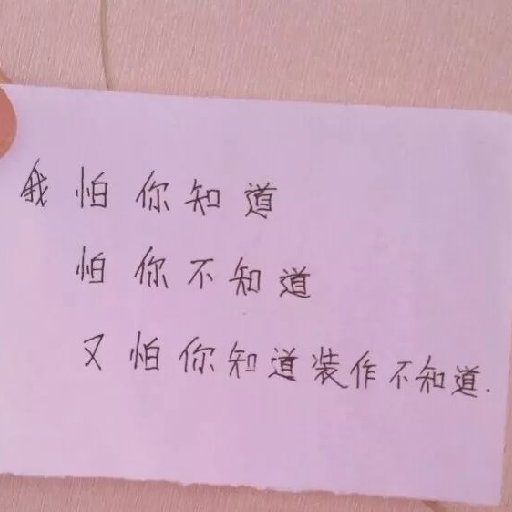 我怕你知道
怕你不知道
又怕你知道装作不知道.